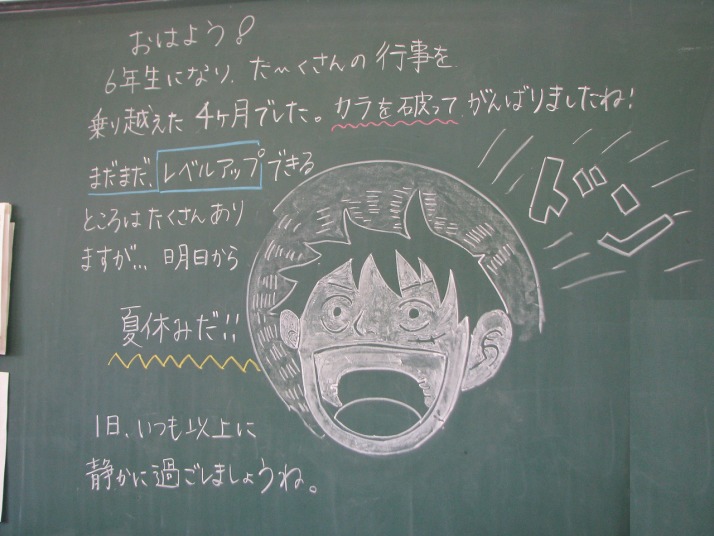 おはよう!
6年生になり、た〜くさんの行事を
乗り越えた4ヶ月でした。カラを破ってがんばりましたね!
まだまだ、レベルアップできる
ところはたくさんあり
ますが... 明日から
夏休みだ!!
1日、いつも以上に
静かに過ごしましょうね。
ドン